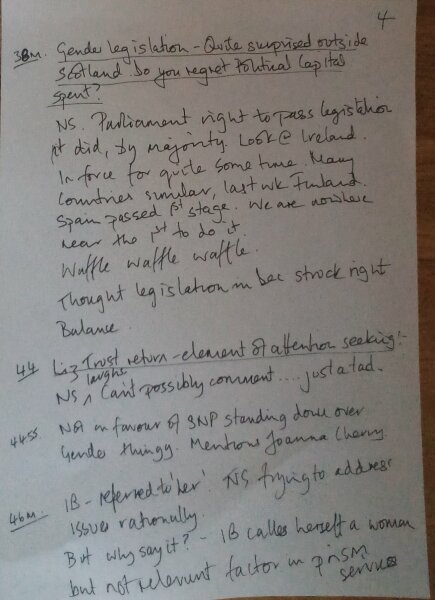 4
38m. Gender legislation - Quite surprised outside
Scotland. Do you regret Political Capital
spent?
NS. Parliament right to pass legislation
it did, by majority. Look @ Ireland.
In force for quite some time. Many
Countries similar, last wk Finland.
Spain passed 1st stage. We are nowhere
near the 1st to do it.
Waffle waffle waffle.
Thought legislation in Dec struck right
Balance.
44 Liz Trust return - element of attention seeking!-
NS laughs Can't possibly comment.... just a tad.
4455. Not in favour of SNP standing down over
Gender thingy. Mentions Joanna Cherry.
46m. IB - referred to 'her'. NS trying to address
issues rationally.
But why say it? - IB calls herself a woman
but not relevant factor in prison
service